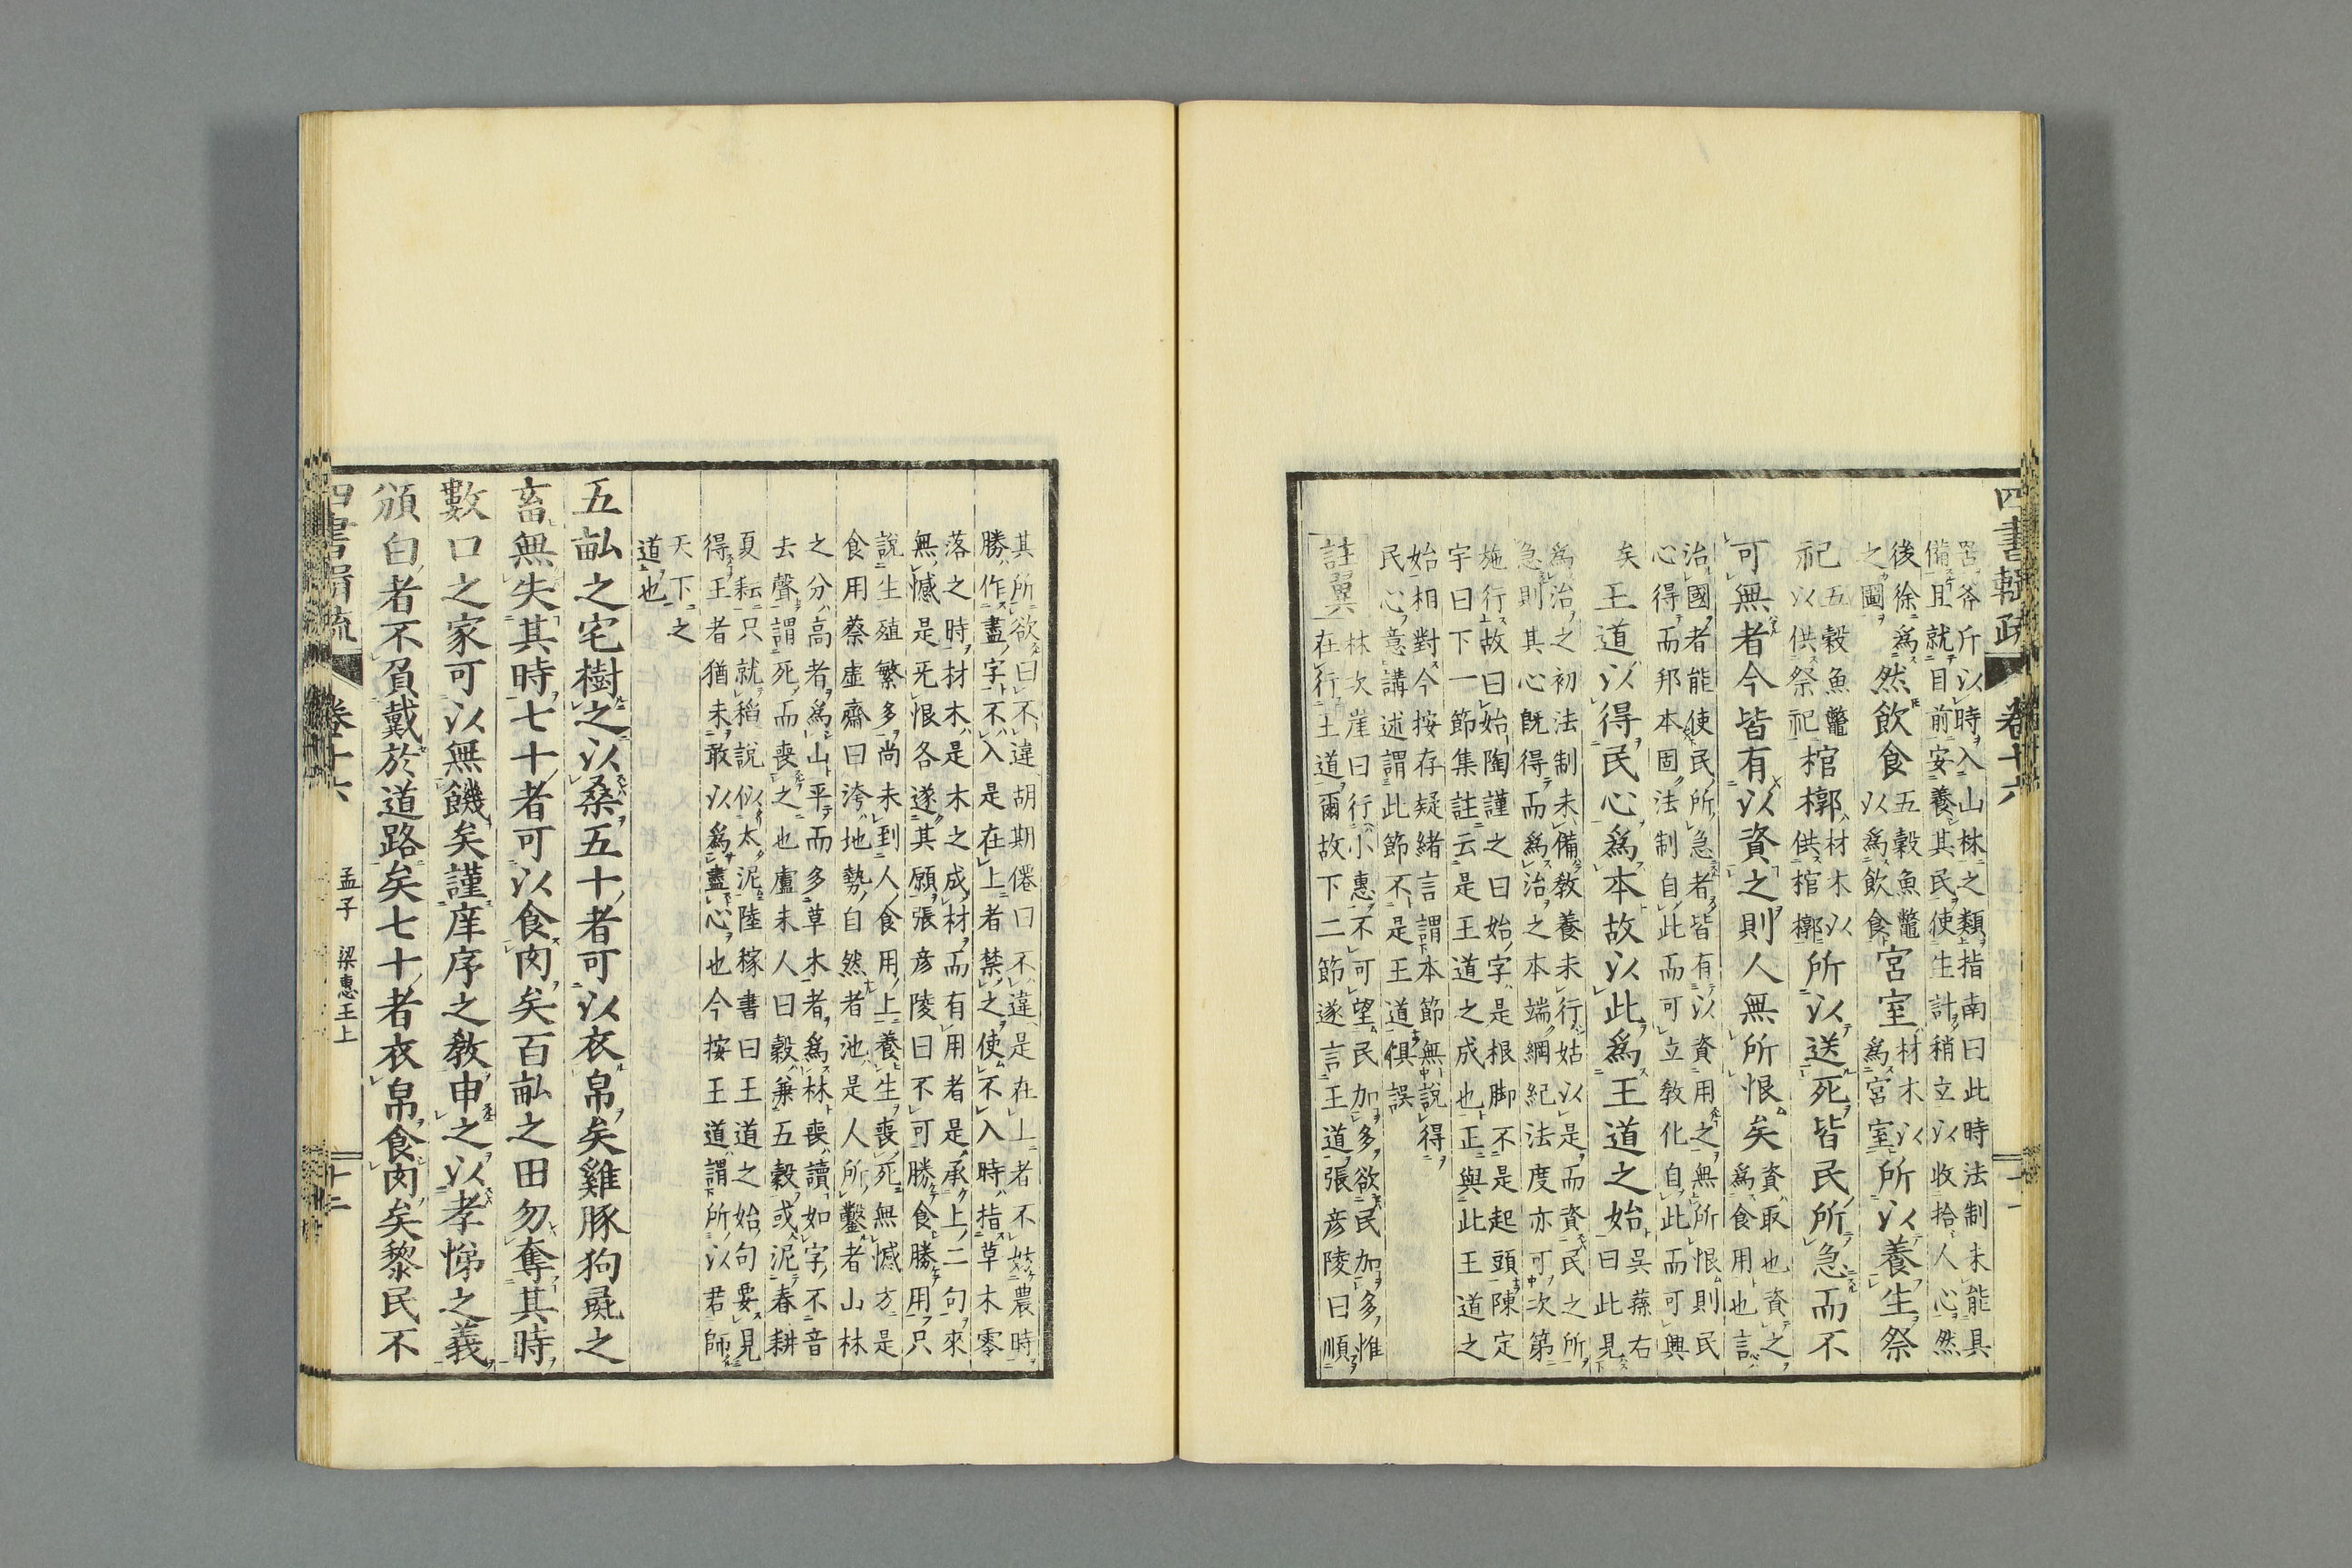 四書輯疏 卷十六 十一
罟斧斤以時入山林之類指南曰此時法制未能具
備且就目前安養其民使生計稍立以收拾人心然
後徐爲之圖 然飲食 五穀魚鼈以爲飲食 宮室 材木以爲宮室 所以養生祭
祀 五穀魚鼈以供祭祀 棺槨 材木以供棺槨 所以送死皆民所急而不
可無者今皆有以資之則人無所恨矣 資取也資之爲食用也言
治國者能使民所急者皆有以資用之無所恨則民
心得而邦本固法制自此而可立教化自此而可興
矣 王道以得民心爲本故以此爲王道之始 吳蓀右曰此見
爲治之初法制未備教養未行姑以是而資民之所
急則其心既得而爲治之本端綱紀法度亦可次第
施行故曰始陶謹之曰始字是根脚不是起頭陳定
宇曰下一節集註云是王道之成也正與此王道之
始相對今按存疑緒言謂本節無說得
民心意講述謂此節不是王道俱誤
註翼 林次崖曰行小惠不可望民加多欲民加多惟
在行王道爾故下二節遂言王道張彦陵曰順
其所欲曰不違胡期僊曰不違是在上者不妨農時
勝作盡字不入是在上者禁之使不入時指草木零
落之時材木是木之成材而有用者是承上二句來
無憾是旡恨各遂其願張彦陵曰不可勝食勝用只
說生殖繁多尚未到人食用上養生喪死無憾方是
食用蔡虛齋曰洿地勢自然者池是人所鑿者山林
之分高者爲山平而多草木者爲林喪讀如字不音
去聲謂死而喪之也盧未人曰穀兼五穀或泥春耕
夏耘只就稻說似太泥陸稼書曰王道之始句要見
得王者猶未敢以爲盡心也今按王道謂所以君師
天下之
道也
五畝之宅樹之以桑五十者可以衣帛矣雞豚狗彘之
畜無失其時七十者可以食肉矣百畝之田勿奪其時
數口之家可以無饑矣謹庠序之教申之以孝悌之義
頒白者不負戴於道路矣七十者衣帛食肉矣黎民不
四書輯疏 卷十六 孟子 梁惠王上 十二